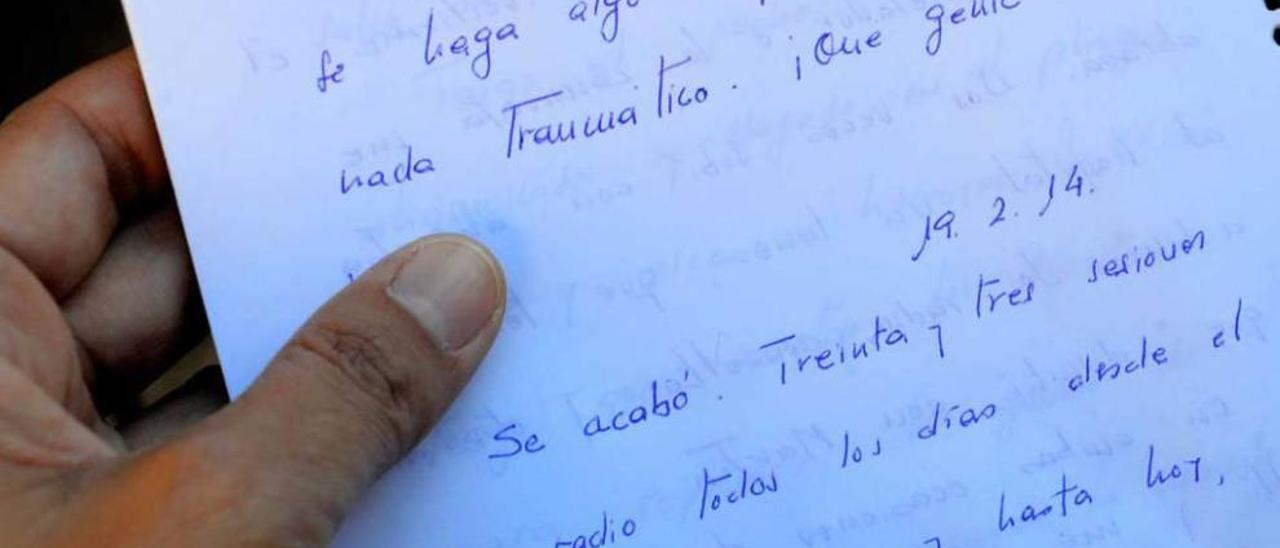 se haga algo
nada Traumático. ¡Que gente
19. 2. 14.
Se acabó. Treinta y tres sesiones
radio todos los días desde el
y hasta hoy,